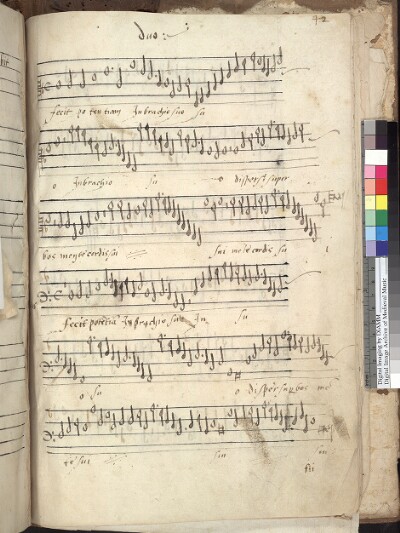 42
duo:
fecit potentiam In brachio suo su
o In brachio su o dispersit super
bos mente cordis sui sui mente cordis su i
fecit potentiā In brachio suo In su
o su o dispersit superbos mē
te sui sui sui
Digital Imaging by DIAMM
Digital Image Archive of Medieval Music